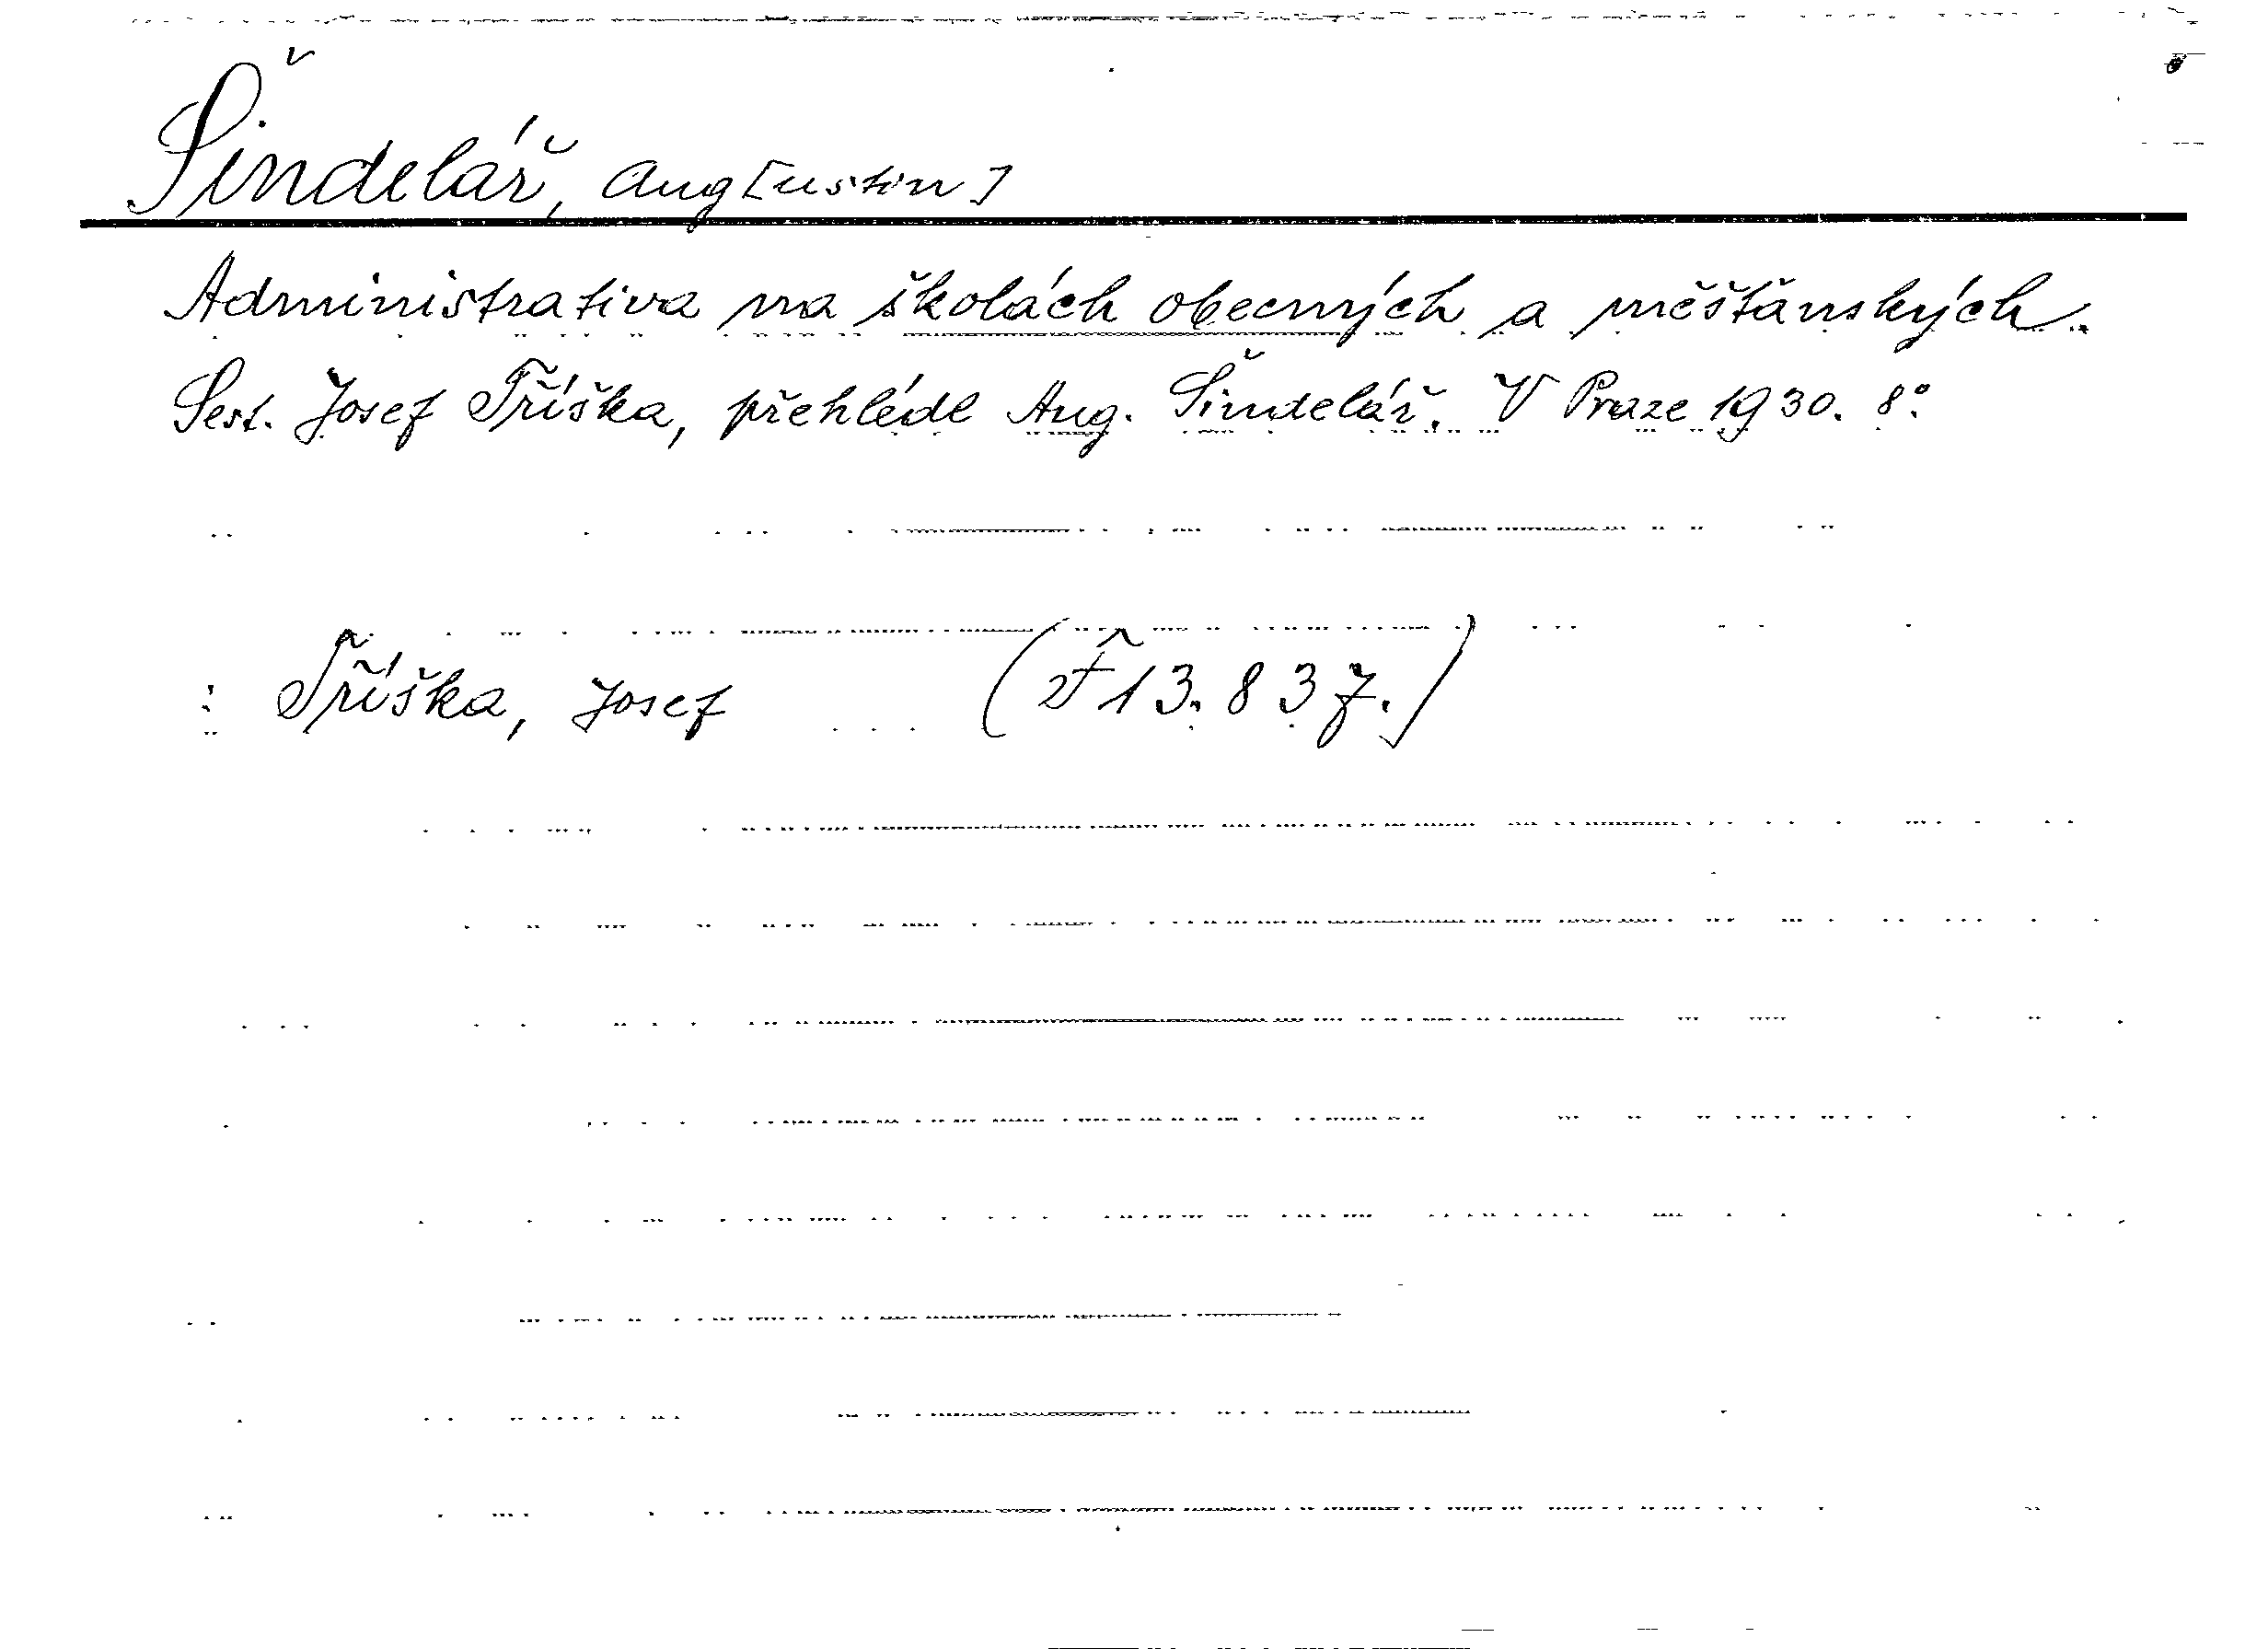 Šindelář, Aug[ustin]
Administrativa na školách obecných a měšťanských.
Sest. Josef Tříška, přehlédl Aug. Šindelář. V Praze 1930. 8°.
: Tříška, Josef (F 13.837.)